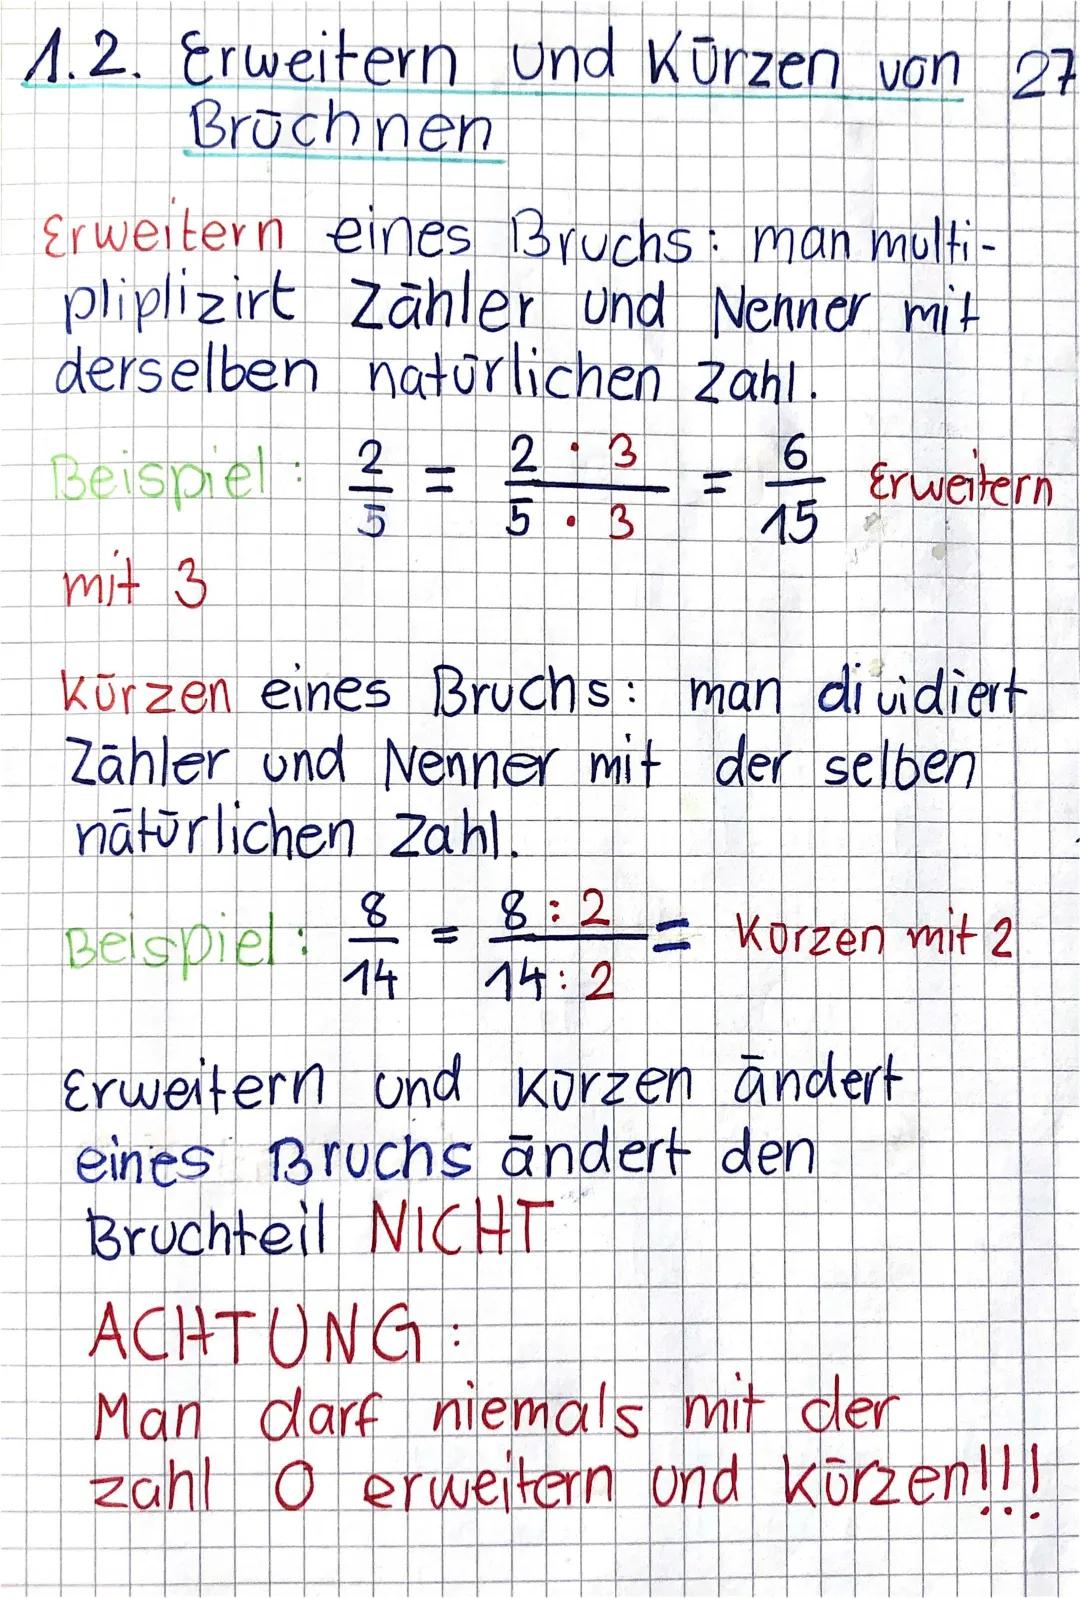 1.2. Erweitern und Kürzen von 27
Brüchnen
Erweitern eines Bruchs: man multi-
pliplizirt Zähler und Nenner mit
derselben natürlichen Zahl.
Beispiel: 2/5 = 2 · 3 / 5 · 3 = 6/15 Erweitern
mit 3
Kürzen eines Bruchs: man dividiert
Zähler und Nenner mit der selben
nätürlichen Zahl.
Beispiel: 8/14 = 8 : 2 / 14 : 2 = Kürzen mit 2
Erweitern und Kürzen ändert
eines Bruchs ändert den
Bruchteil NICHT
ACHTUNG:
Man darf niemals mit der
zahl 0 erweitern und kürzen!!!